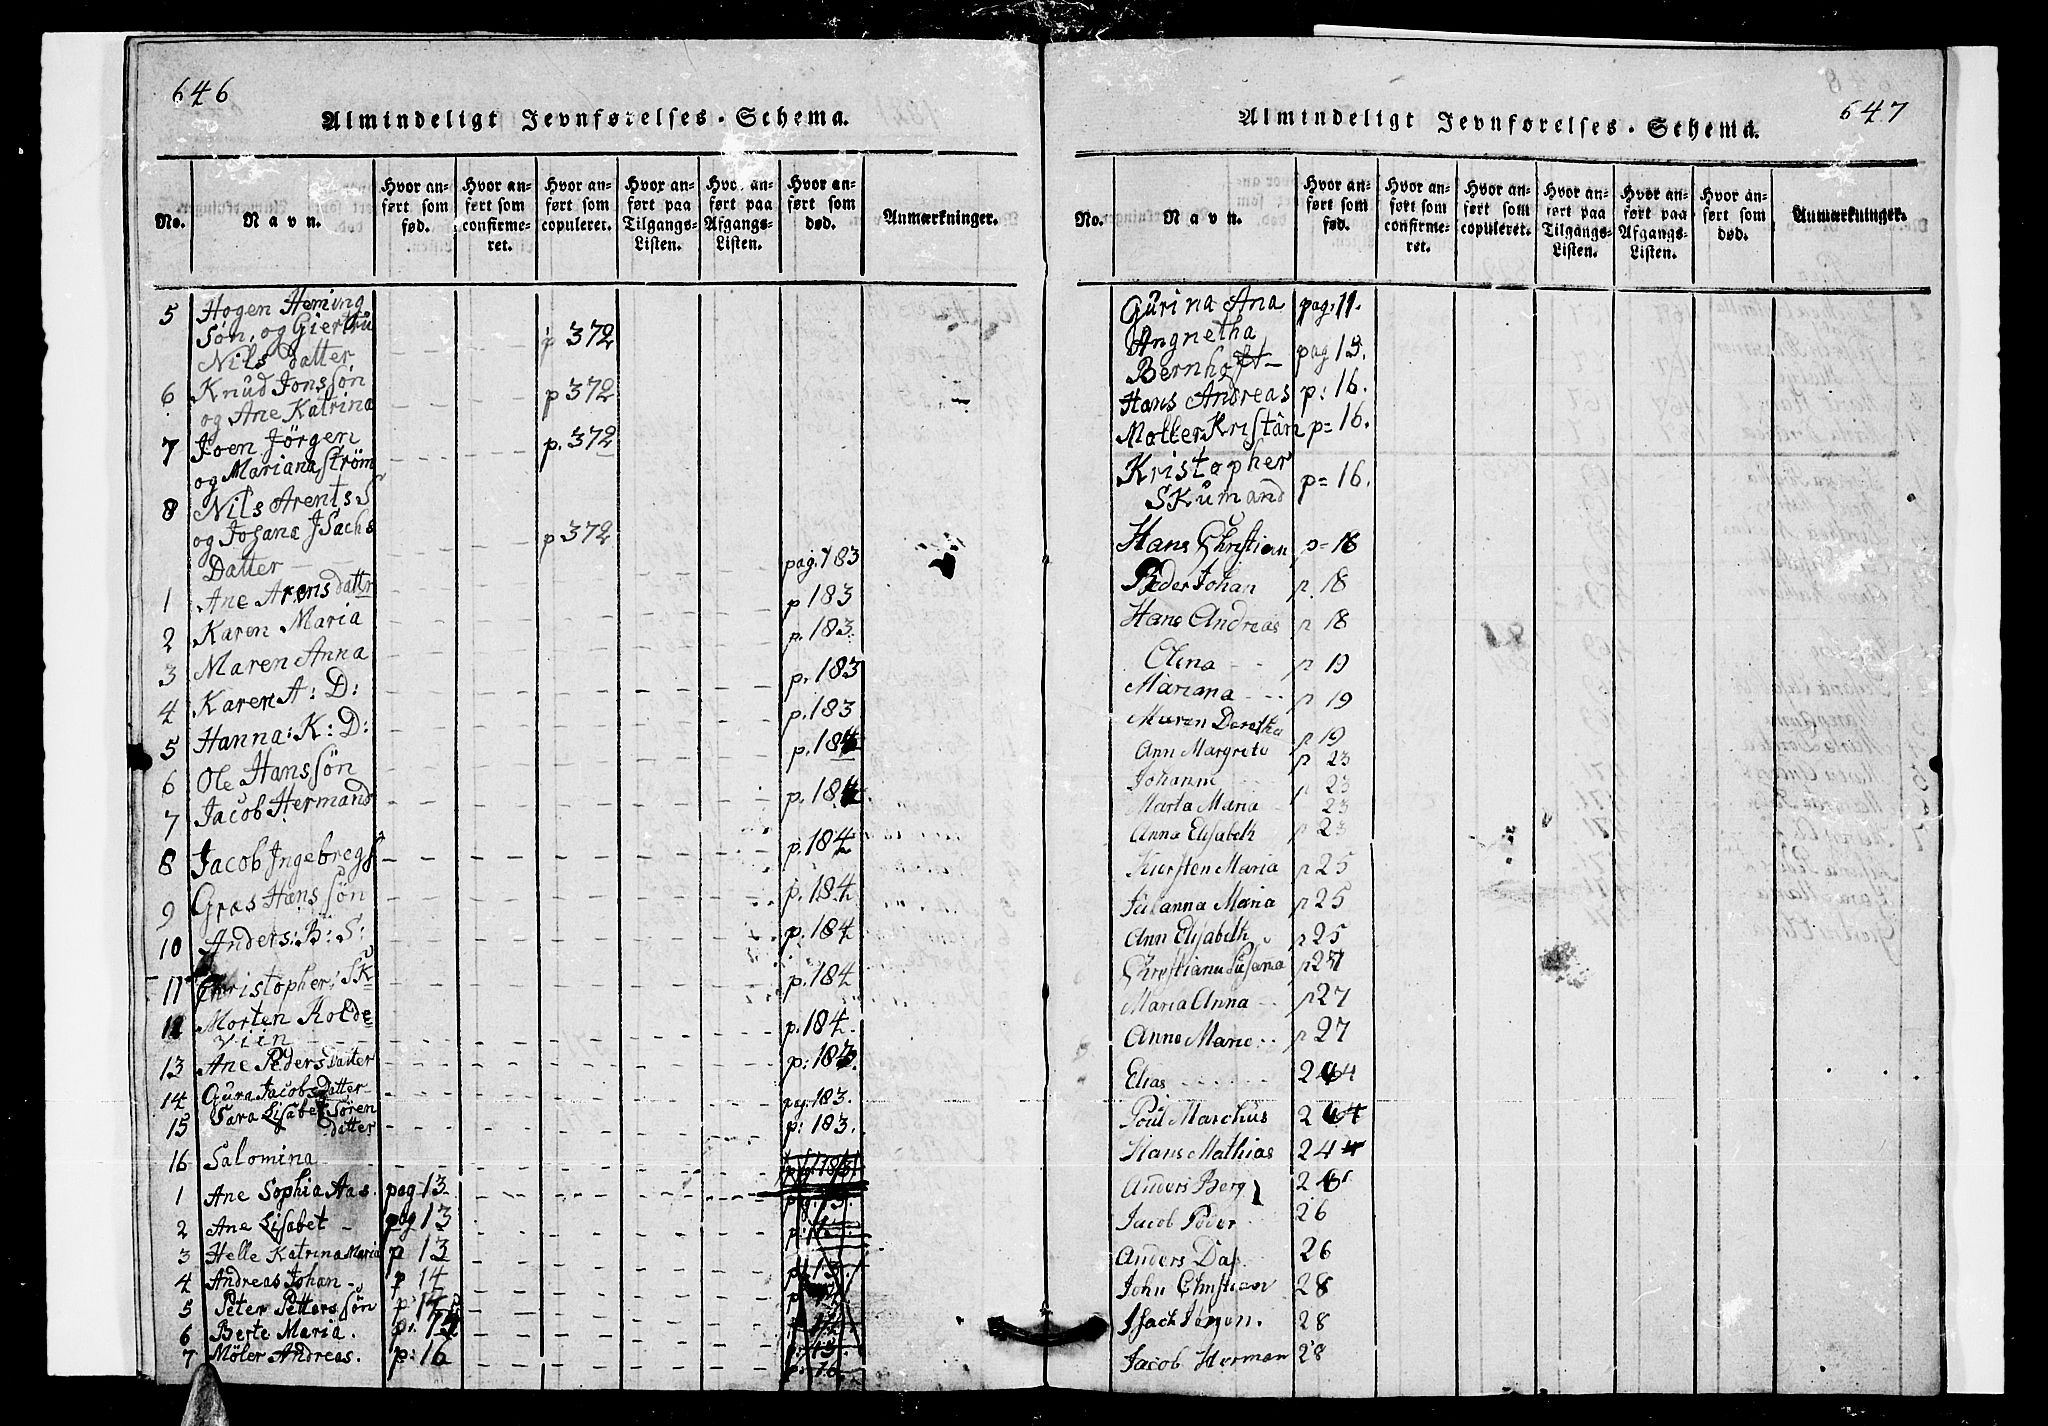 646
Almindeligt Jevnførelses-Schema.
No.
Navn.
Hvor anført som fød.
Hvor anført som confirmeret.
Hvor anført som copuleret.
Hvor anført paa Tilgangs-Listen.
Hvor anført paa Afgangs-Listen.
Hvor anført som død.
Anmærkninger.
5 Hogen Heming
Søn, og Giertru
Nils Datter p 372
6 Knud Jonssøn
og Ane Katrina p 372
7 Joen Jörgen p. 372
og Mariana Ström
8 Nils Arents S
og Josana Jsachs p 372
Datter
1 Ane Arens datter pag. 183
2 Karen Maria p 183
3 Maren Anna p. 183
4 Karen A: D: p. 183
5 Hanna: K: D: p. 183
6 Ole Hanssøn p. 184
7 Jacob Hermand p. 184
8 Jacob Ingebregs p. 184
9 Gras Hanssøn p. 184
10 Anders: B: S: p. 184
11 Christopher: Sk p. 184
12 Morten Holde p. 184
viin
13 Ane Peders Datter p: 183
14 Gura Jacobs Datter pag. 183
15 Sara Lisabet Søren p: 183
datter
16 Salomina
1 Ane Sophia Aas. pag 13
2 Ane Lisabet pag 13
3 Helle Katrina Maria p 13
4 Andreas Johan p 14
5 Peter Petters sön p: 14
6 Berte Maria. p:
7 Möler Andreas. p: 16
647
Almindeligt Jevnførelses-Schema.
No.
Navn.
Hvor anført som fød.
Hvor anført som confirmeret.
Hvor anført som copuleret.
Hvor anført paa Tilgangs-Listen.
Hvor anført paa Afgangs-Listen.
Hvor anført som død.
Anmærkninger.
Gurina Ana pag: 11.
Angnetha
Bernhoft pag 15.
Hans Andreas p: 16.
Motter Kristan p= 16.
Kristopher
Skumand p= 16.
Hans Christian p= 18
Peder Johan p. 18
Hans Andreas p 18
Olina p 19
Mariana p 19
Maren Dorethea p 19
Ann Margrete p 23
Johanne p 23
Marta Maria 23
Anna Elisabeth p 23
Kiersten Maria p 25
Julianna Maria p 25
Ann Elisabeth p 25
Christiana Susana p 27
Maria Anna p 27
Anne Marie p 27
Elias 24
Poul Marchus 24
Hans Mathias 24
Anders Berg
Jacob Peder 26
Anders Das 26
John Christian 28
Isach Jørgen. 28
Jacob Herman 28